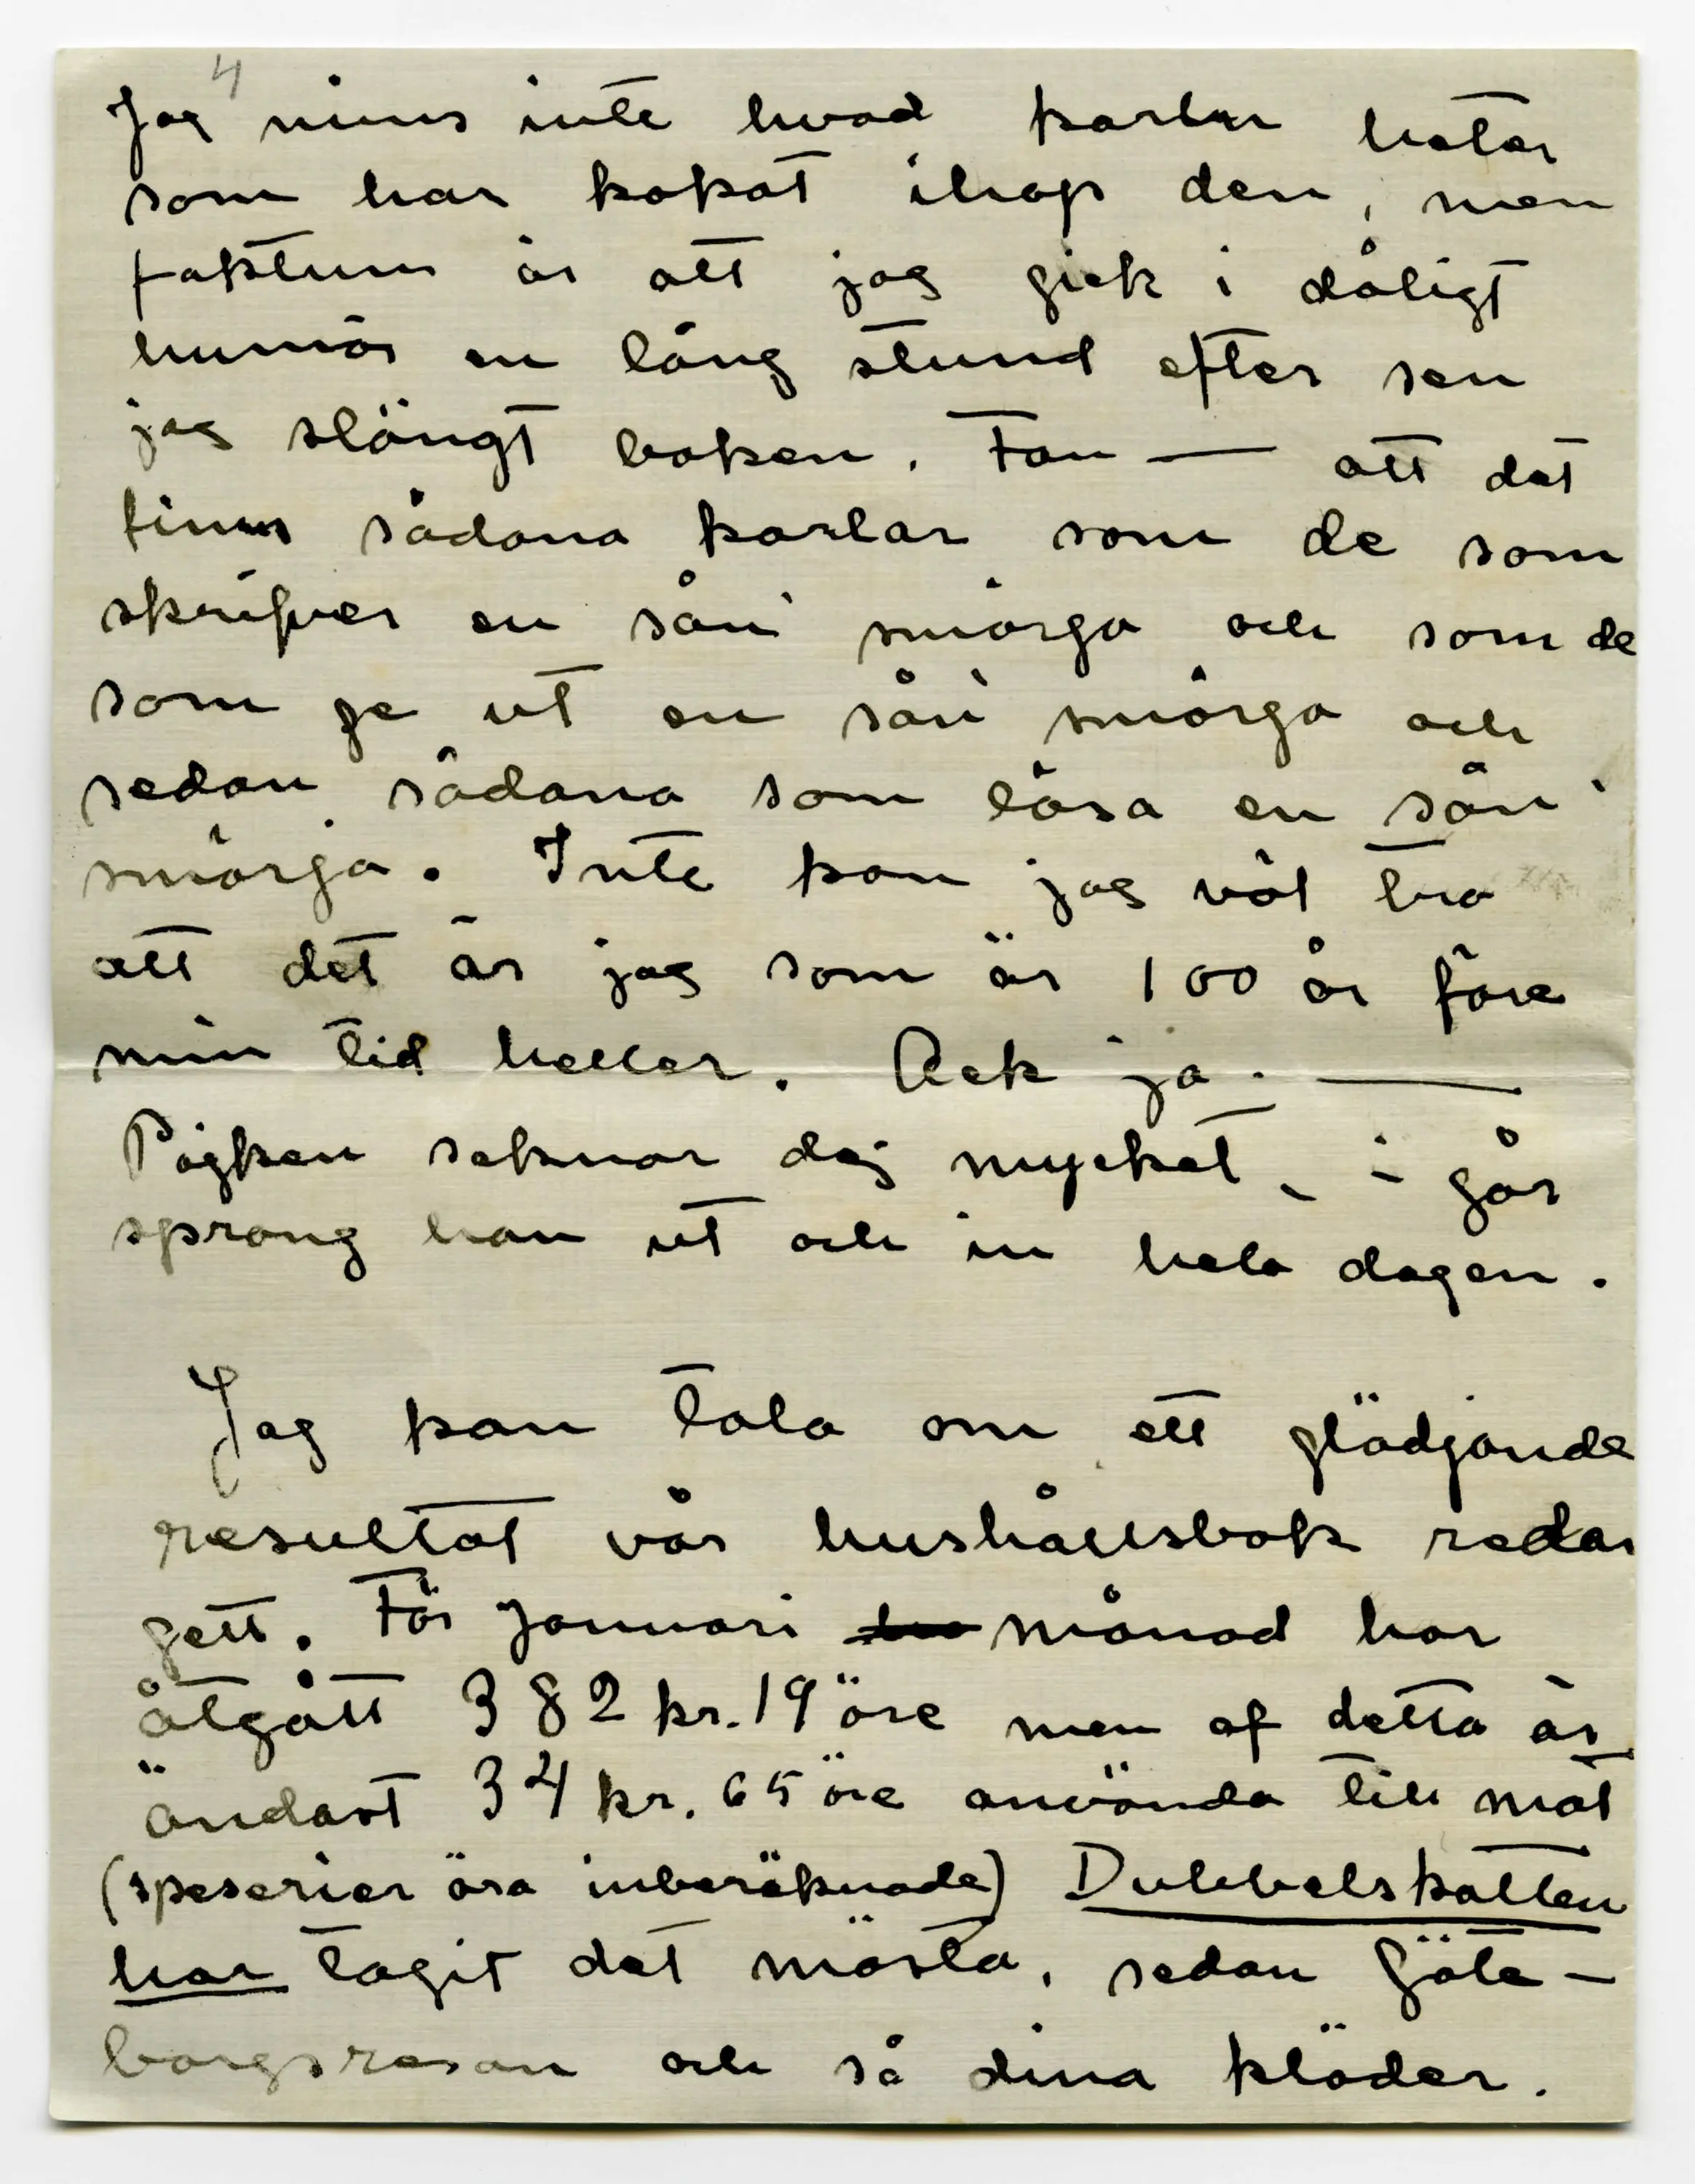 4
Jag mins inte hvad karlen heter
som har kokat ihop den, men
faktum är att jag gick i dåligt
humör en lång stund efter sen
jag slängt boken. Fan — att det
finns sådana karlar som de som
skrifver en sån' smörja och som de
som ge ut en sån' smörja och
sedan sådana som läsa en sån'
smörja. Inte kan jag väl tro
att det är jag som är 100 år före
min tid heller. Ack ja. —
Pojken saknar dej mycket, i går
sprang han ut och in hela dagen.
Jag kan tala om ett glädjande
resultat vår hushållsbok redan
gett. För Januari månad har
åtgått 382 kr. 19 öre men af detta är
endast 34 kr. 65 öre använda till mat
(speserier äro inberäknade) Dubbelskatten
har tagit det mästa, sedan Göte-
borgsresan och så dina kläder.